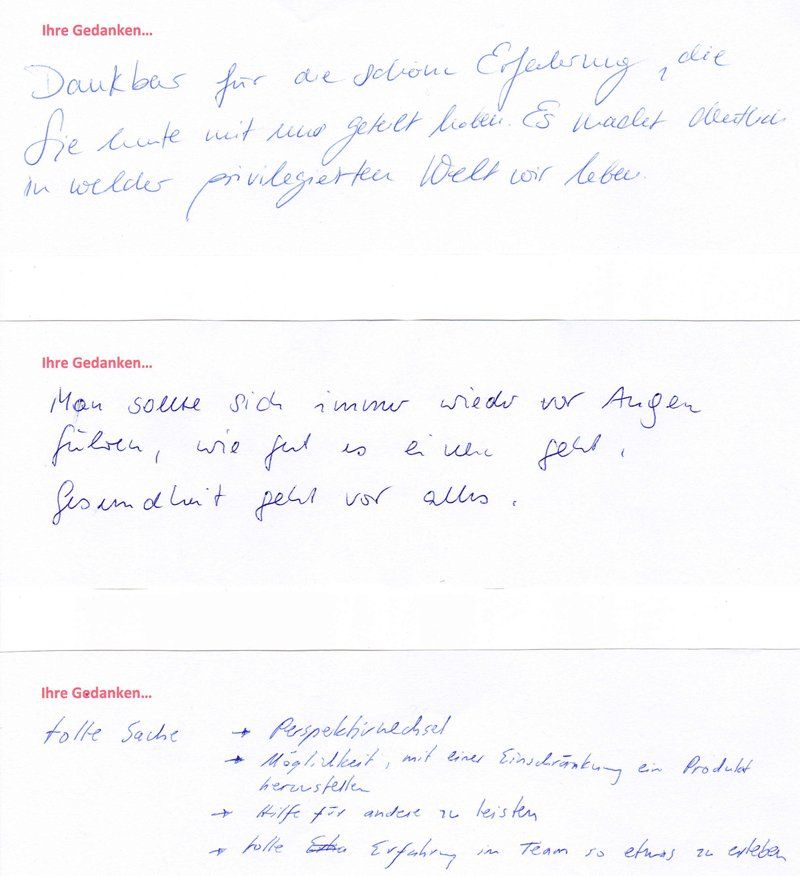 Ihre Gedanken...
Dankbar für die schöne Erfahrung, die
Sie heute mit uns geteilt haben. Es macht deutlich
in welcher privilegierten Welt wir leben.
Ihre Gedanken...
Man sollte sich immer wieder vor Augen
führen, wie gut es einem geht.
Gesundheit geht vor alles.
Ihre Gedanken...
tolle Sache → Perspektivwechsel
→ Möglichkeit, mit einer Einschränkung ein Produkt
herzustellen
→ Hilfe für andere zu leisten
→ tolle Erfahrung im Team so etwas zu erleben